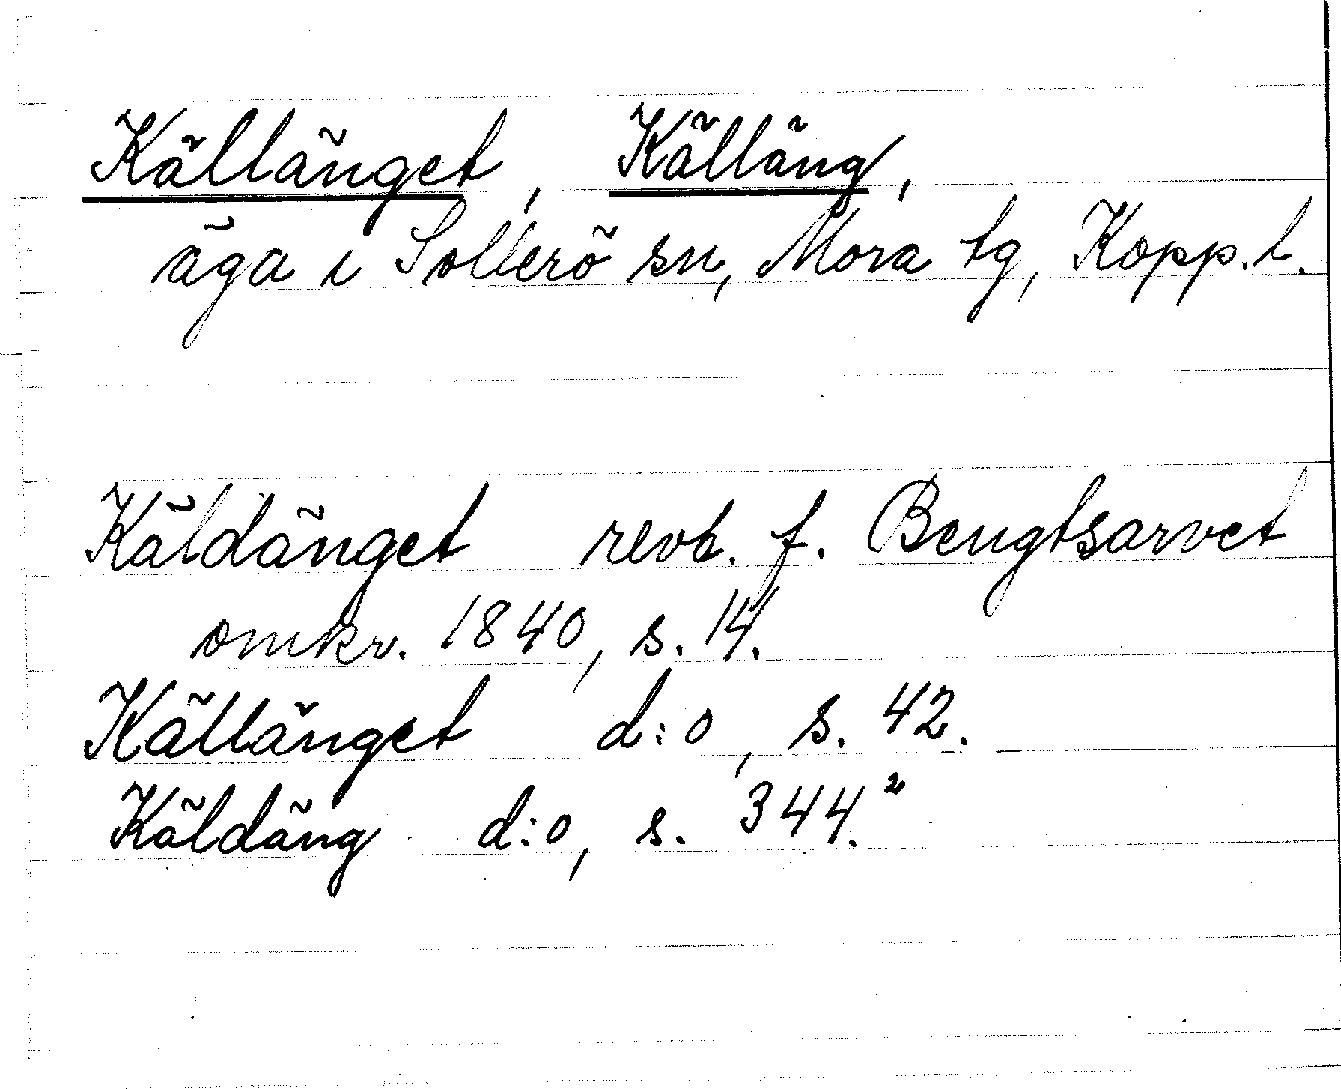 Källänget, Källäng,
äga i Sollerö sn, Mora tg, Kopp. l.
Käldänget revb. f. Bengtsarvet
omkr. 1840, s. 14.
Källänget d:o, s. 42.
Käldäng d:o, s. 344.²